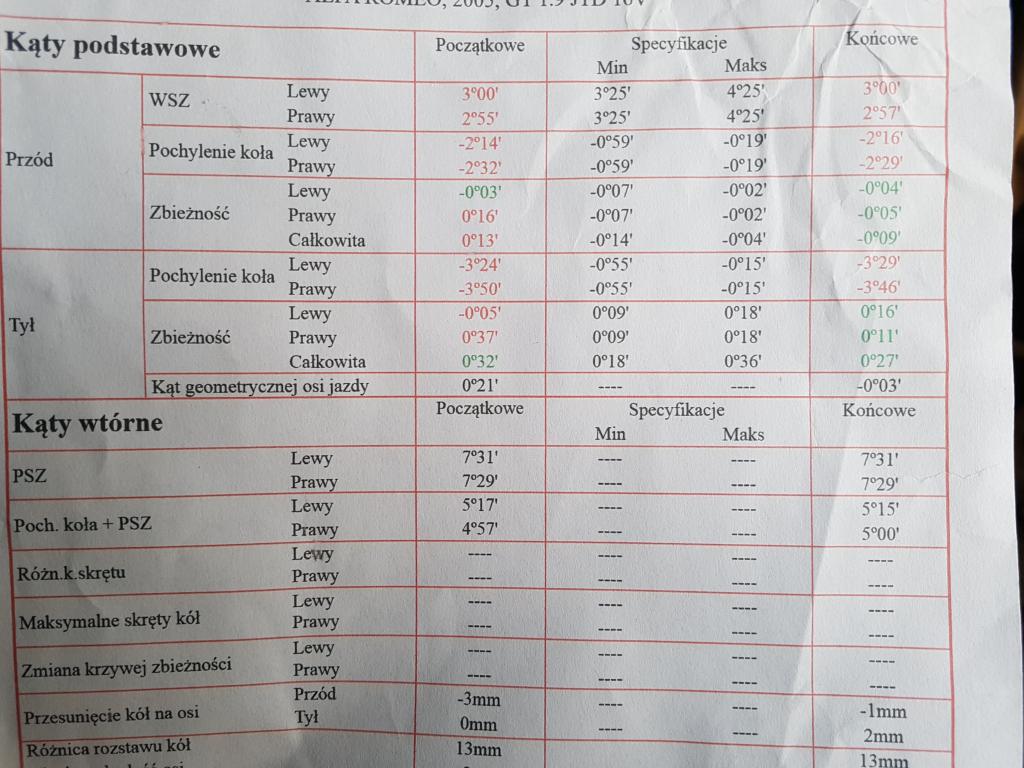 ALFA ROMEO, 2005, GT 1.9 JTD 16V
Kąty podstawowe Początkowe Specyfikacje Końcowe
Min Maks
Przód WSZ Lewy 3°00' 3°25' 4°25' 3°00'
Prawy 2°55' 3°25' 4°25' 2°57'
Pochylenie koła Lewy -2°14' -0°59' -0°19' -2°16'
Prawy -2°32' -0°59' -0°19' -2°29'
Zbieżność Lewy -0°03' -0°07' -0°02' -0°04'
Prawy 0°16' -0°07' -0°02' -0°05'
Całkowita 0°13' -0°14' -0°04' -0°09'
Tył Pochylenie koła Lewy -3°24' -0°55' -0°15' -3°29'
Prawy -3°50' -0°55' -0°15' -3°46'
Zbieżność Lewy -0°05' 0°09' 0°18' 0°16'
Prawy 0°37' 0°09' 0°18' 0°11'
Całkowita 0°32' 0°18' 0°36' 0°27'
Kąt geometrycznej osi jazdy 0°21' ---- ---- -0°03'
Kąty wtórne Początkowe Specyfikacje Końcowe
Min Maks
PSZ Lewy 7°31' ---- ---- 7°31'
Prawy 7°29' ---- ---- 7°29'
Poch. koła + PSZ Lewy 5°17' ---- ---- 5°15'
Prawy 4°57' ---- ---- 5°00'
Różn.k.skrętu Lewy ---- ---- ---- ----
Prawy ---- ---- ---- ----
Maksymalne skręty kół Lewy ---- ---- ---- ----
Prawy ---- ---- ---- ----
Zmiana krzywej zbieżności Lewy ---- ---- ---- ----
Prawy ---- ---- ---- ----
Przesunięcie kół na osi Przód -3mm ---- ---- -1mm
Tył 0mm ---- ---- 2mm
Różnica rozstawu kół 13mm 13mm